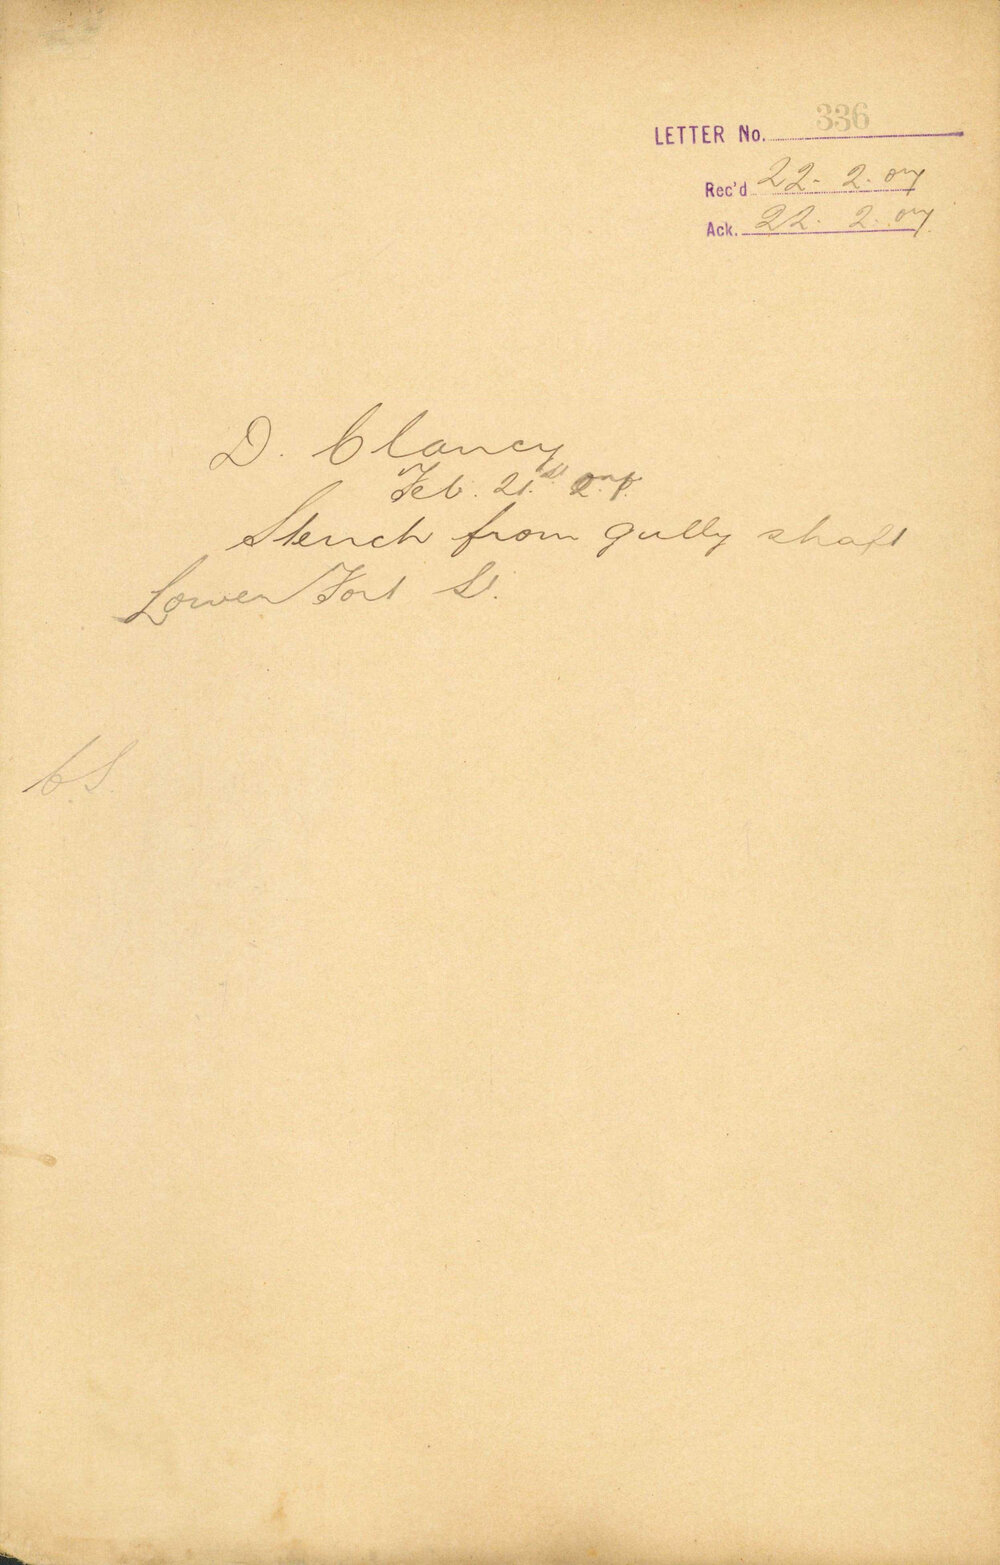 LETTER No. 336
Rec'd 22. 2. 07
Ack. 22. 2. 07
D. Clancy
Feb. 21st 07.
Stench from gully shaft
Lower Fort St.
C.S.